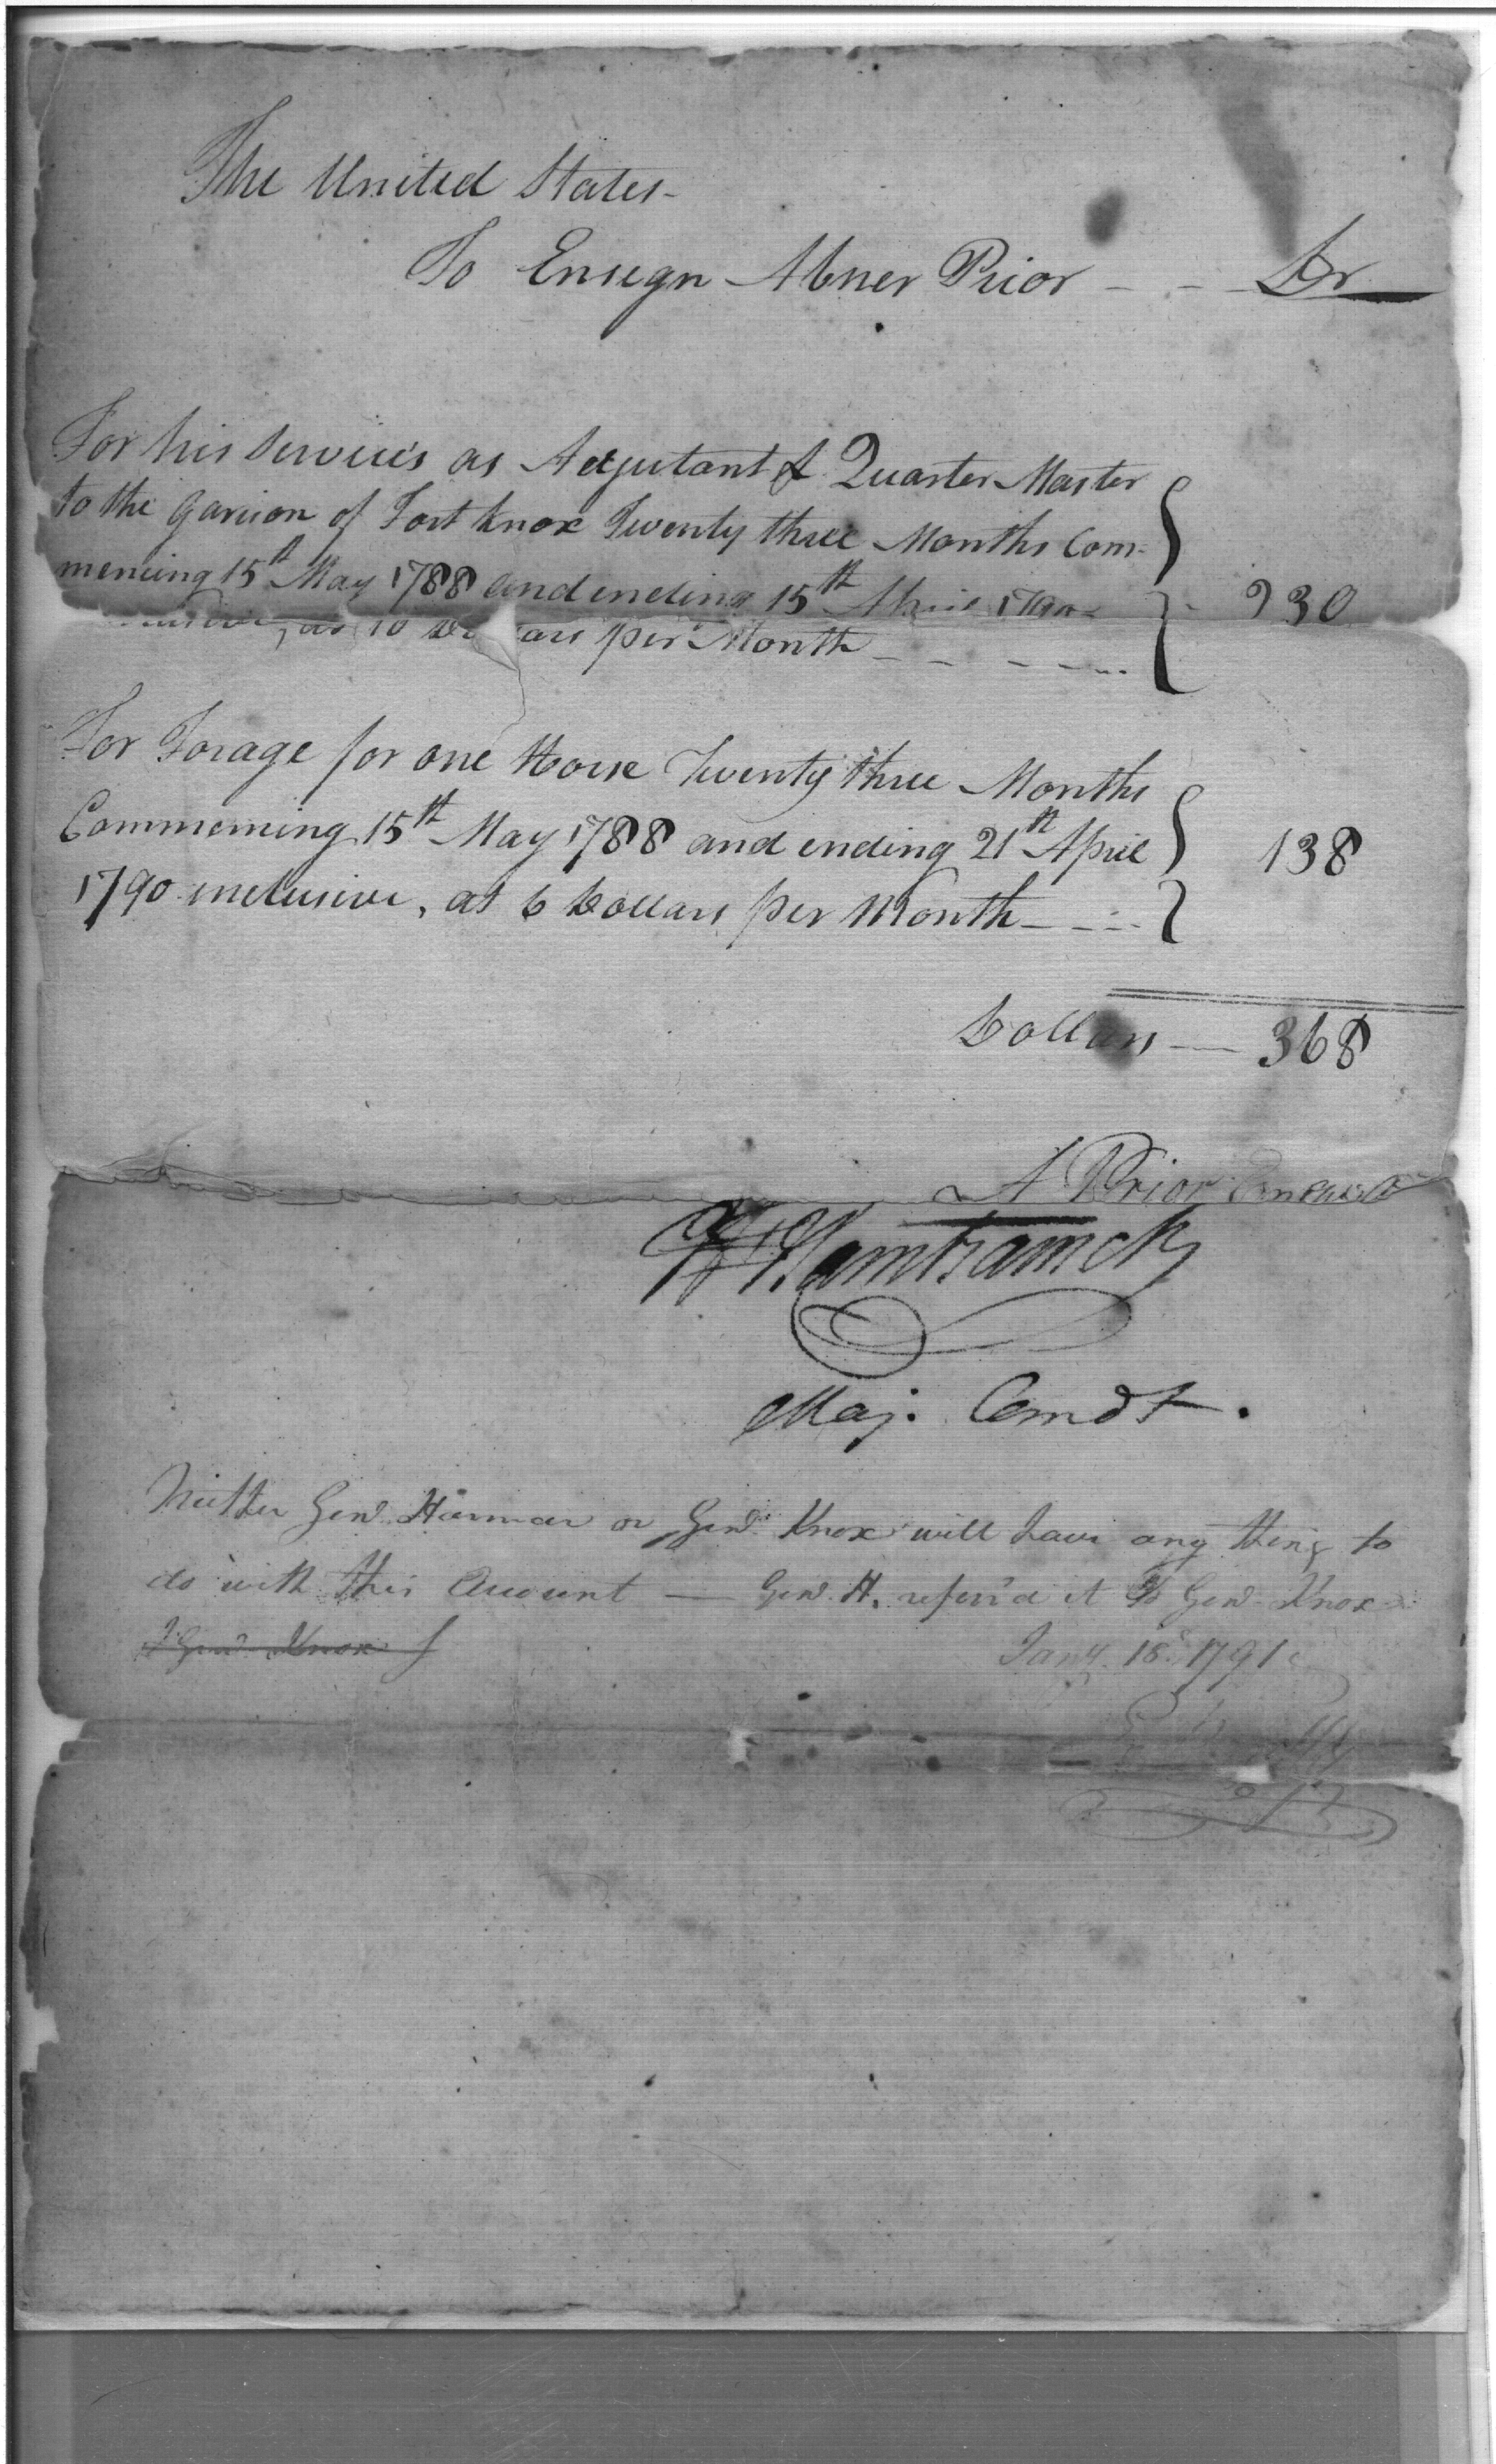 The United States-
To Ensign Abner Prior - - Dr
For his Services as Adjutant & Quarter Master
to the Garrison of Fort Knox Twenty three Months Com-
mencing 15th May 1788 and ending 15th April 1790
at 10 Dollars per Month - - - - 230
For Forage for one Horse Twenty three Months
Commencing 15th May 1788 and ending 21st April 138
1790 inclusive, at 6 Dollars per Month - - - -
Dollars — 368
A Prior Ensign
J F Hamtramck
Maj. Comdt.
Neither Genl. Harmar or Genl. Knox will have any thing to
do with this Account — Genl. H. referr'd it to Genl Knox
Genl Knox
Jany. 18. 1791